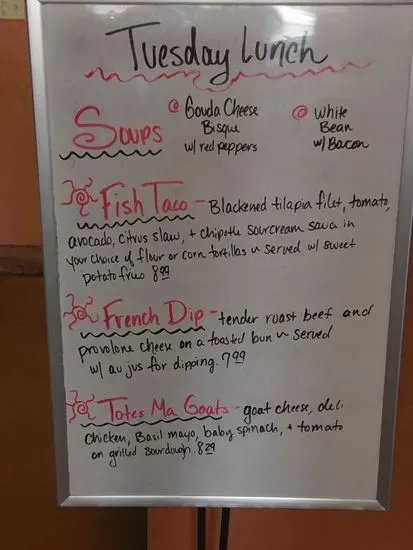 Tuesday Lunch
Soups
@ Gouda Cheese
Bisque
w/ red peppers
@ White
Bean
w/ Bacon
Fish Taco - Blackened tilapia filet, tomato,
avocado, citrus slaw, + chipotle sourcream sauce in
your choice of flour or corn tortillas ~ served w/ sweet
potato fries 8.99
French Dip - tender roast beef and
provolone cheese on a toasted bun ~ served
w/ au jus for dipping. 7.99
Totes Ma Goats - goat cheese, deli
chicken, Basil mayo, baby spinach, + tomato
on grilled sourdough.